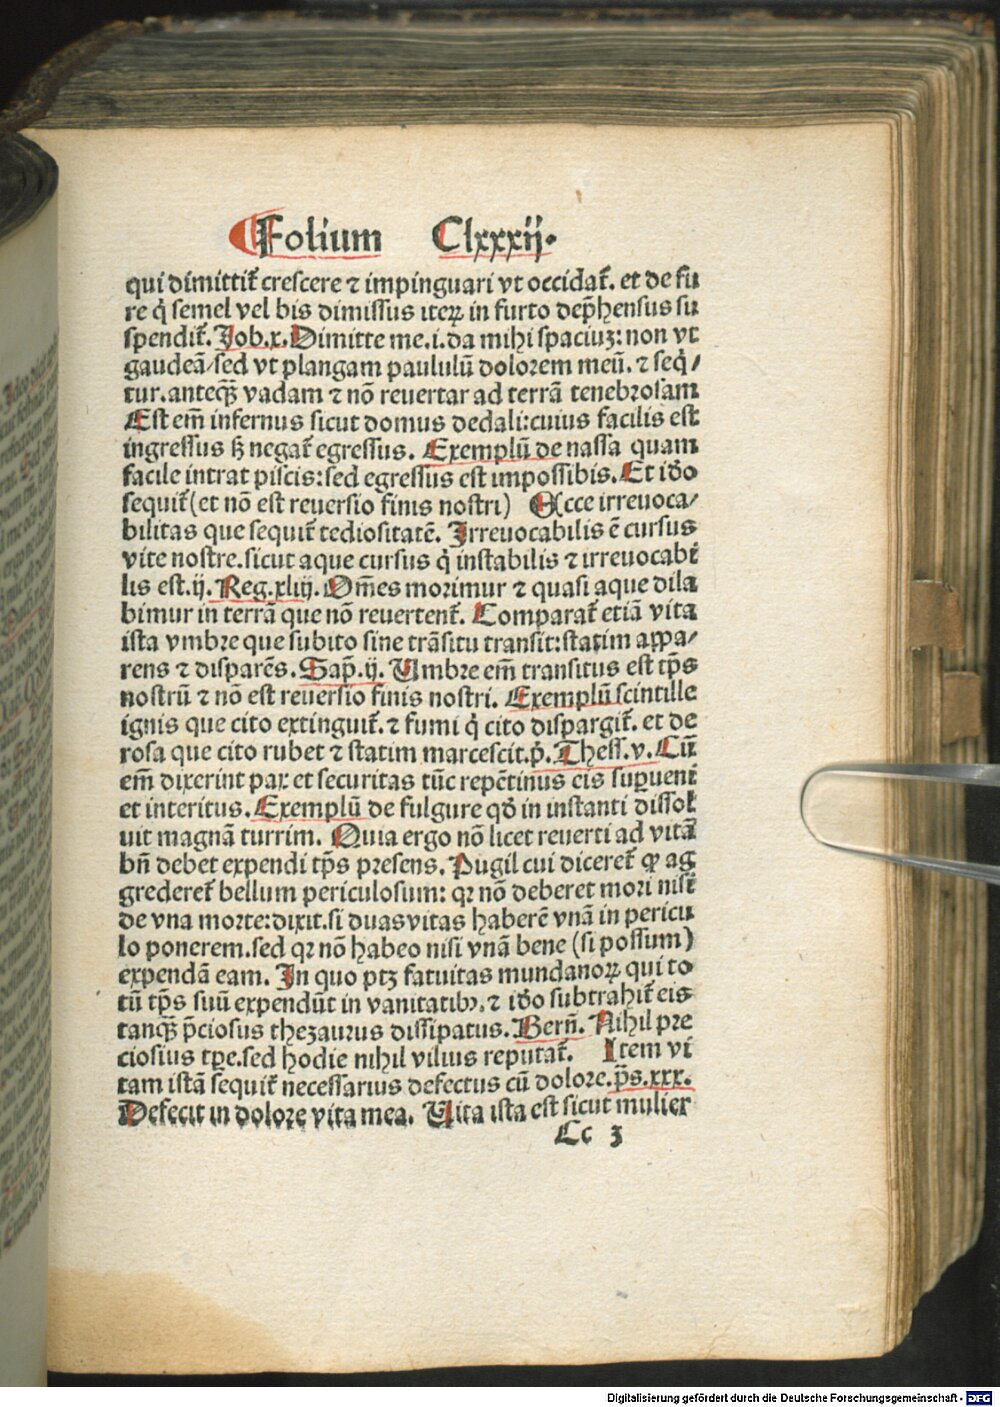 Folium Clxxxij.
qui dimittit̃ crescere ⁊ impinguari vt occidat̃. et de fu
re q̇ semel vel bis dimissus iteꝝ in furto dep̃hensus su
spendit̃. Job.x. Dimitte me.i.da mihi spaciuʒ: non vt
gaudeã/sed vt plangam paululũ dolorem meũ. ⁊ seq̇/
tur.anteq̃ꝫ vadam ⁊ nõ reuertar ad terrã tenebrosam
Est em̃ infernus sicut domus dedali:cuius facilis est
ingressus sꝫ negat̃ egressus. Exemplũ de nassa quam
facile intrat piscis:sed egressus est impossibis. Et iđo
sequit̃ (et nõ est reuersio finis nostri) Ecce irreuoca/
bilitas que sequit̃ tediositatẽ. Irreuocabilis ẽ cursus
vite nostre.sicut aque cursus q̇ instabilis ⁊ irreuocabi
lis est.ij. Reg.xliij. Om̃es morimur ⁊ quasi aque dila
bimur in terrã que nõ reuertent̃. Comparat̃ etiã vita
ista vmbre que subito sine trãsitu transit:statim appa/
rens ⁊ disparẽs. Sap̃.ij. Umbre em̃ transitus est tp̃s
nostrũ ⁊ nõ est reuersio finis nostri. Exemplũ scintille
ignis que cito extinguit̃. ⁊ fumi q̇ cito dispargit̃. et de
rosa que cito rubet ⁊ statim marcescit.p̃. Thess.v. Cũ
em̃ dixerint pax et securitas tũc repẽtinus eis suꝑueni
et interitus. Exemplũ de fulgure qđ in instanti dissol
uit magnã turrim. Quia ergo nõ licet reuerti ad vitã
bñ debet expendi tp̃s presens. Pugil cui diceret̃ ꝙ ag
grederet̃ bellum periculosum: qꝛ nõ deberet mori nisi
de vna morte:dixit.si duas vitas haberẽ vnã in pericu
lo ponerem.sed qꝛ nõ habeo nisi vnã bene (si possum)
expendã eam. In quo ptꝫ fatuitas mundanoꝝ qui to
tũ tp̃s suũ expendũt in vanitatibꝰ.⁊ iđo subtrahit̃ eis
tanq̃ꝫ p̃ciosus thezaurus dissipatus. Berñ. Nihil pre
ciosius tꝑe.sed hodie nihil vilius reputat̃. Item vi
tam istã sequit̃ necessarius defectus cũ dolore.p̃s.xxx.
Defecit in dolore vita mea. Uita ista est sicut mulier
Cc 3
Digitalisierung gefördert durch die Deutsche Forschungsgemeinschaft - DFG